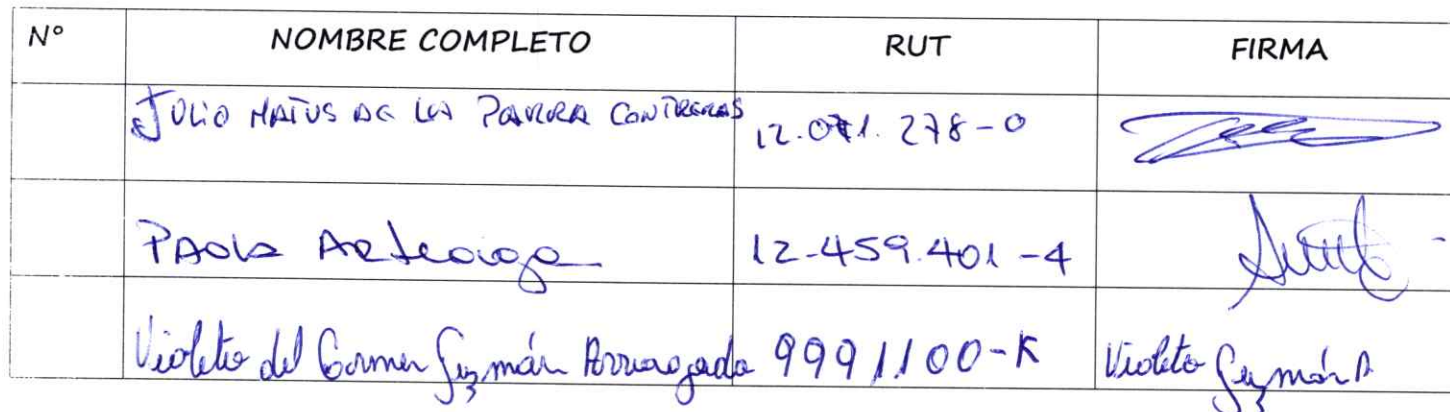 N° NOMBRE COMPLETO RUT FIRMA
JULIO MATUS DE LA PARRA CONTRERAS 12.071.278-0
PAOLA Arteaiga 12-459.401-4
Violeta del Carmen Guzmán Arriagada 9991.100-K Violeta Guzmán A